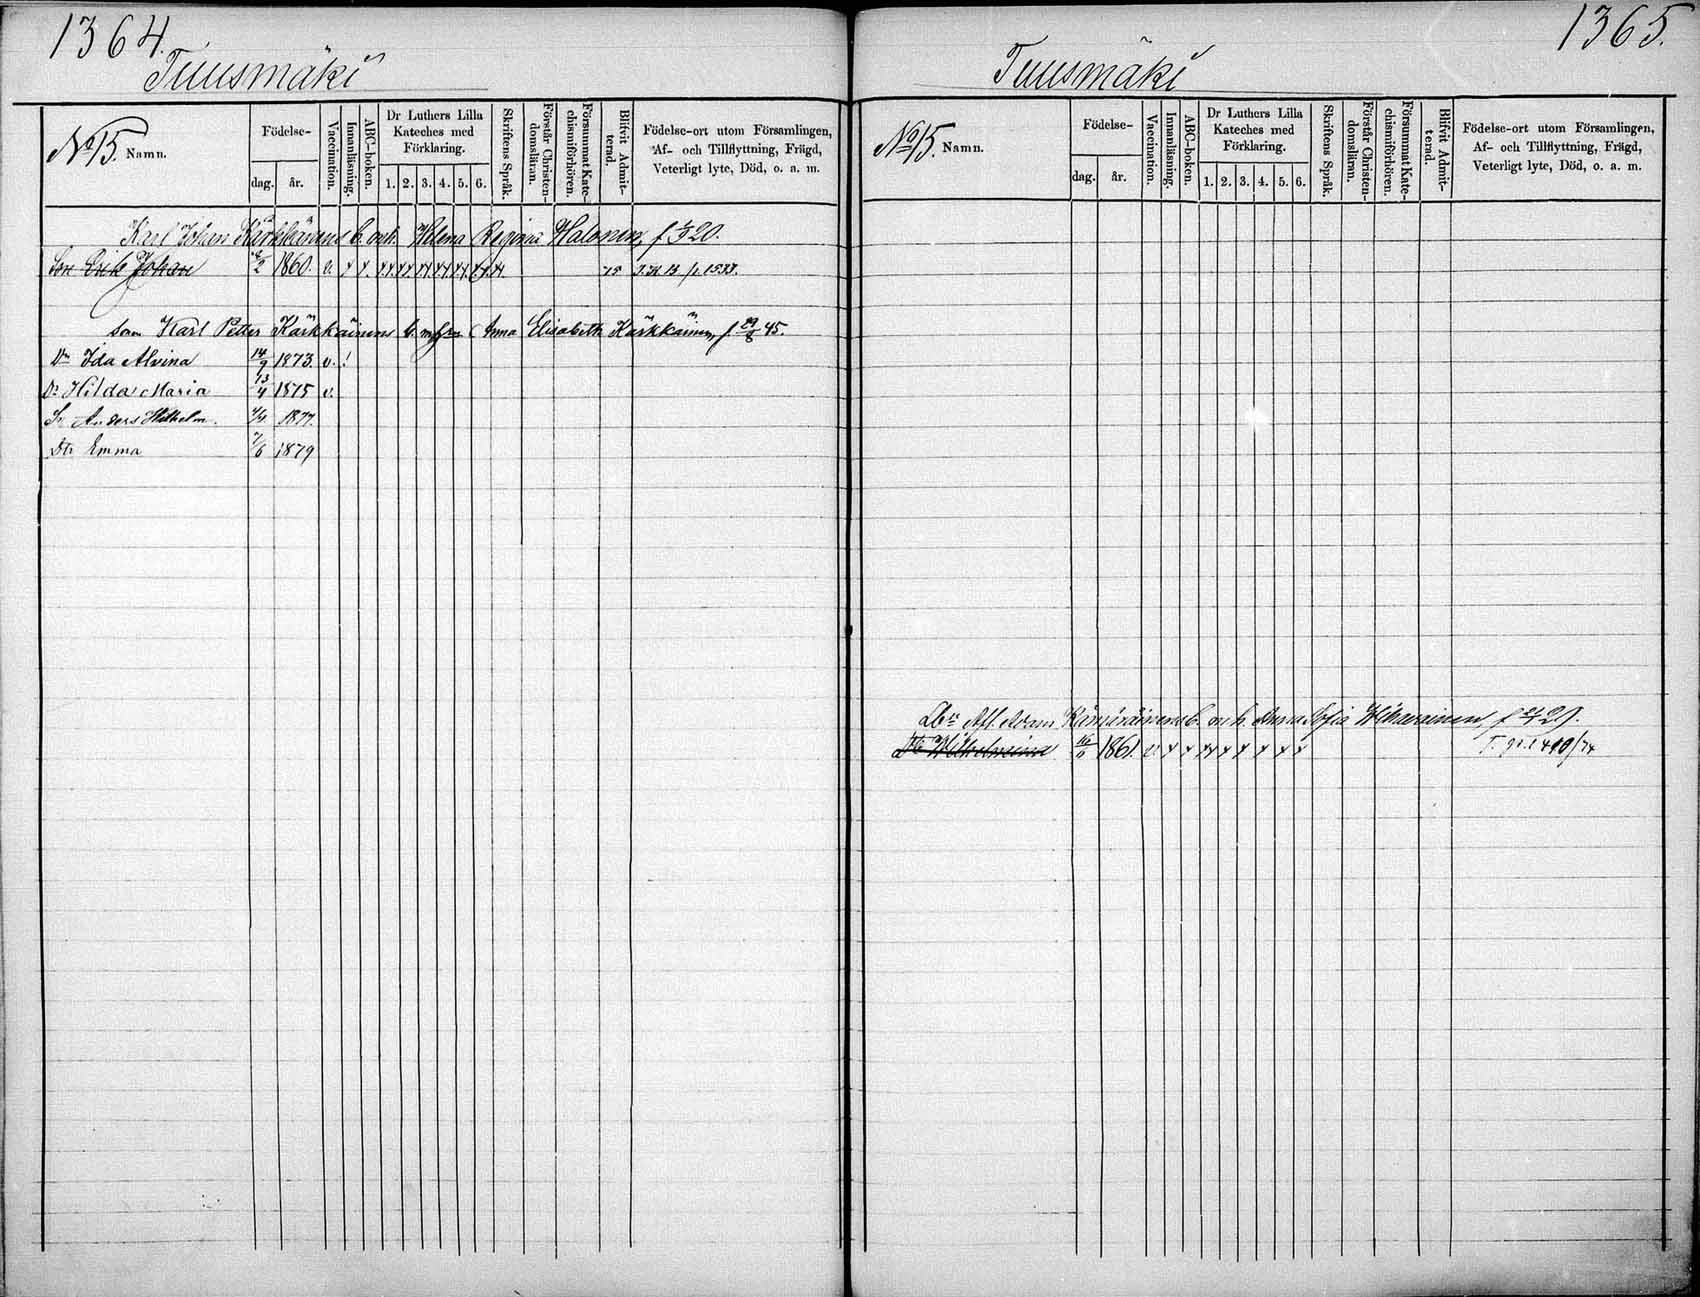 1364.
Tuusmäki
No 15. Namn.
Födelse-
dag. år.
Vaccination.
Innanläsning.
ABC-boken.
Dr Luthers Lilla
Kateches med
Förklaring.
1. 2. 3. 4. 5. 6.
Skriftens Språk.
Förstår Christen-
domsläran.
Försummat Kate-
chismiförhören.
Blifvit Admit-
terad.
Födelse-ort utom Församlingen,
Af- och Tillflyttning, Frägd,
Veterligt lyte, Död, o. a. m.
Karl Johan Kärkkäinens b. m. h. Helena Regina Halonen, f. 20.
Son Erik Johan 1860. v. x x. 75 p. 1533.
Karl Petter Kärkkäinens b. m. Anna Elisabeth Kärkkäinen, f. 29/8 45.
Dr Ida Alvina 14/9 1873. v. !
Dr Hilda Maria 13/4 1875 v.
Sn Anders Wilhelm. 1877.
Dtr Emma 7/6 1879
1365.
Tuusmäki
No 15. Namn.
Födelse-
dag. år.
Vaccination.
Innanläsning.
ABC-boken.
Dr Luthers Lilla
Kateches med
Förklaring.
1. 2. 3. 4. 5. 6.
Skriftens Språk.
Förstår Christen-
domsläran.
Försummat Kate-
chismiförhören.
Blifvit Admit-
terad.
Födelse-ort utom Församlingen,
Af- och Tillflyttning, Frägd,
Veterligt lyte, Död, o. a. m.
Adam b. m. h. Anna Sofia f. 29.
Wilhelmiina 16/6 1861. v. x x 410/74